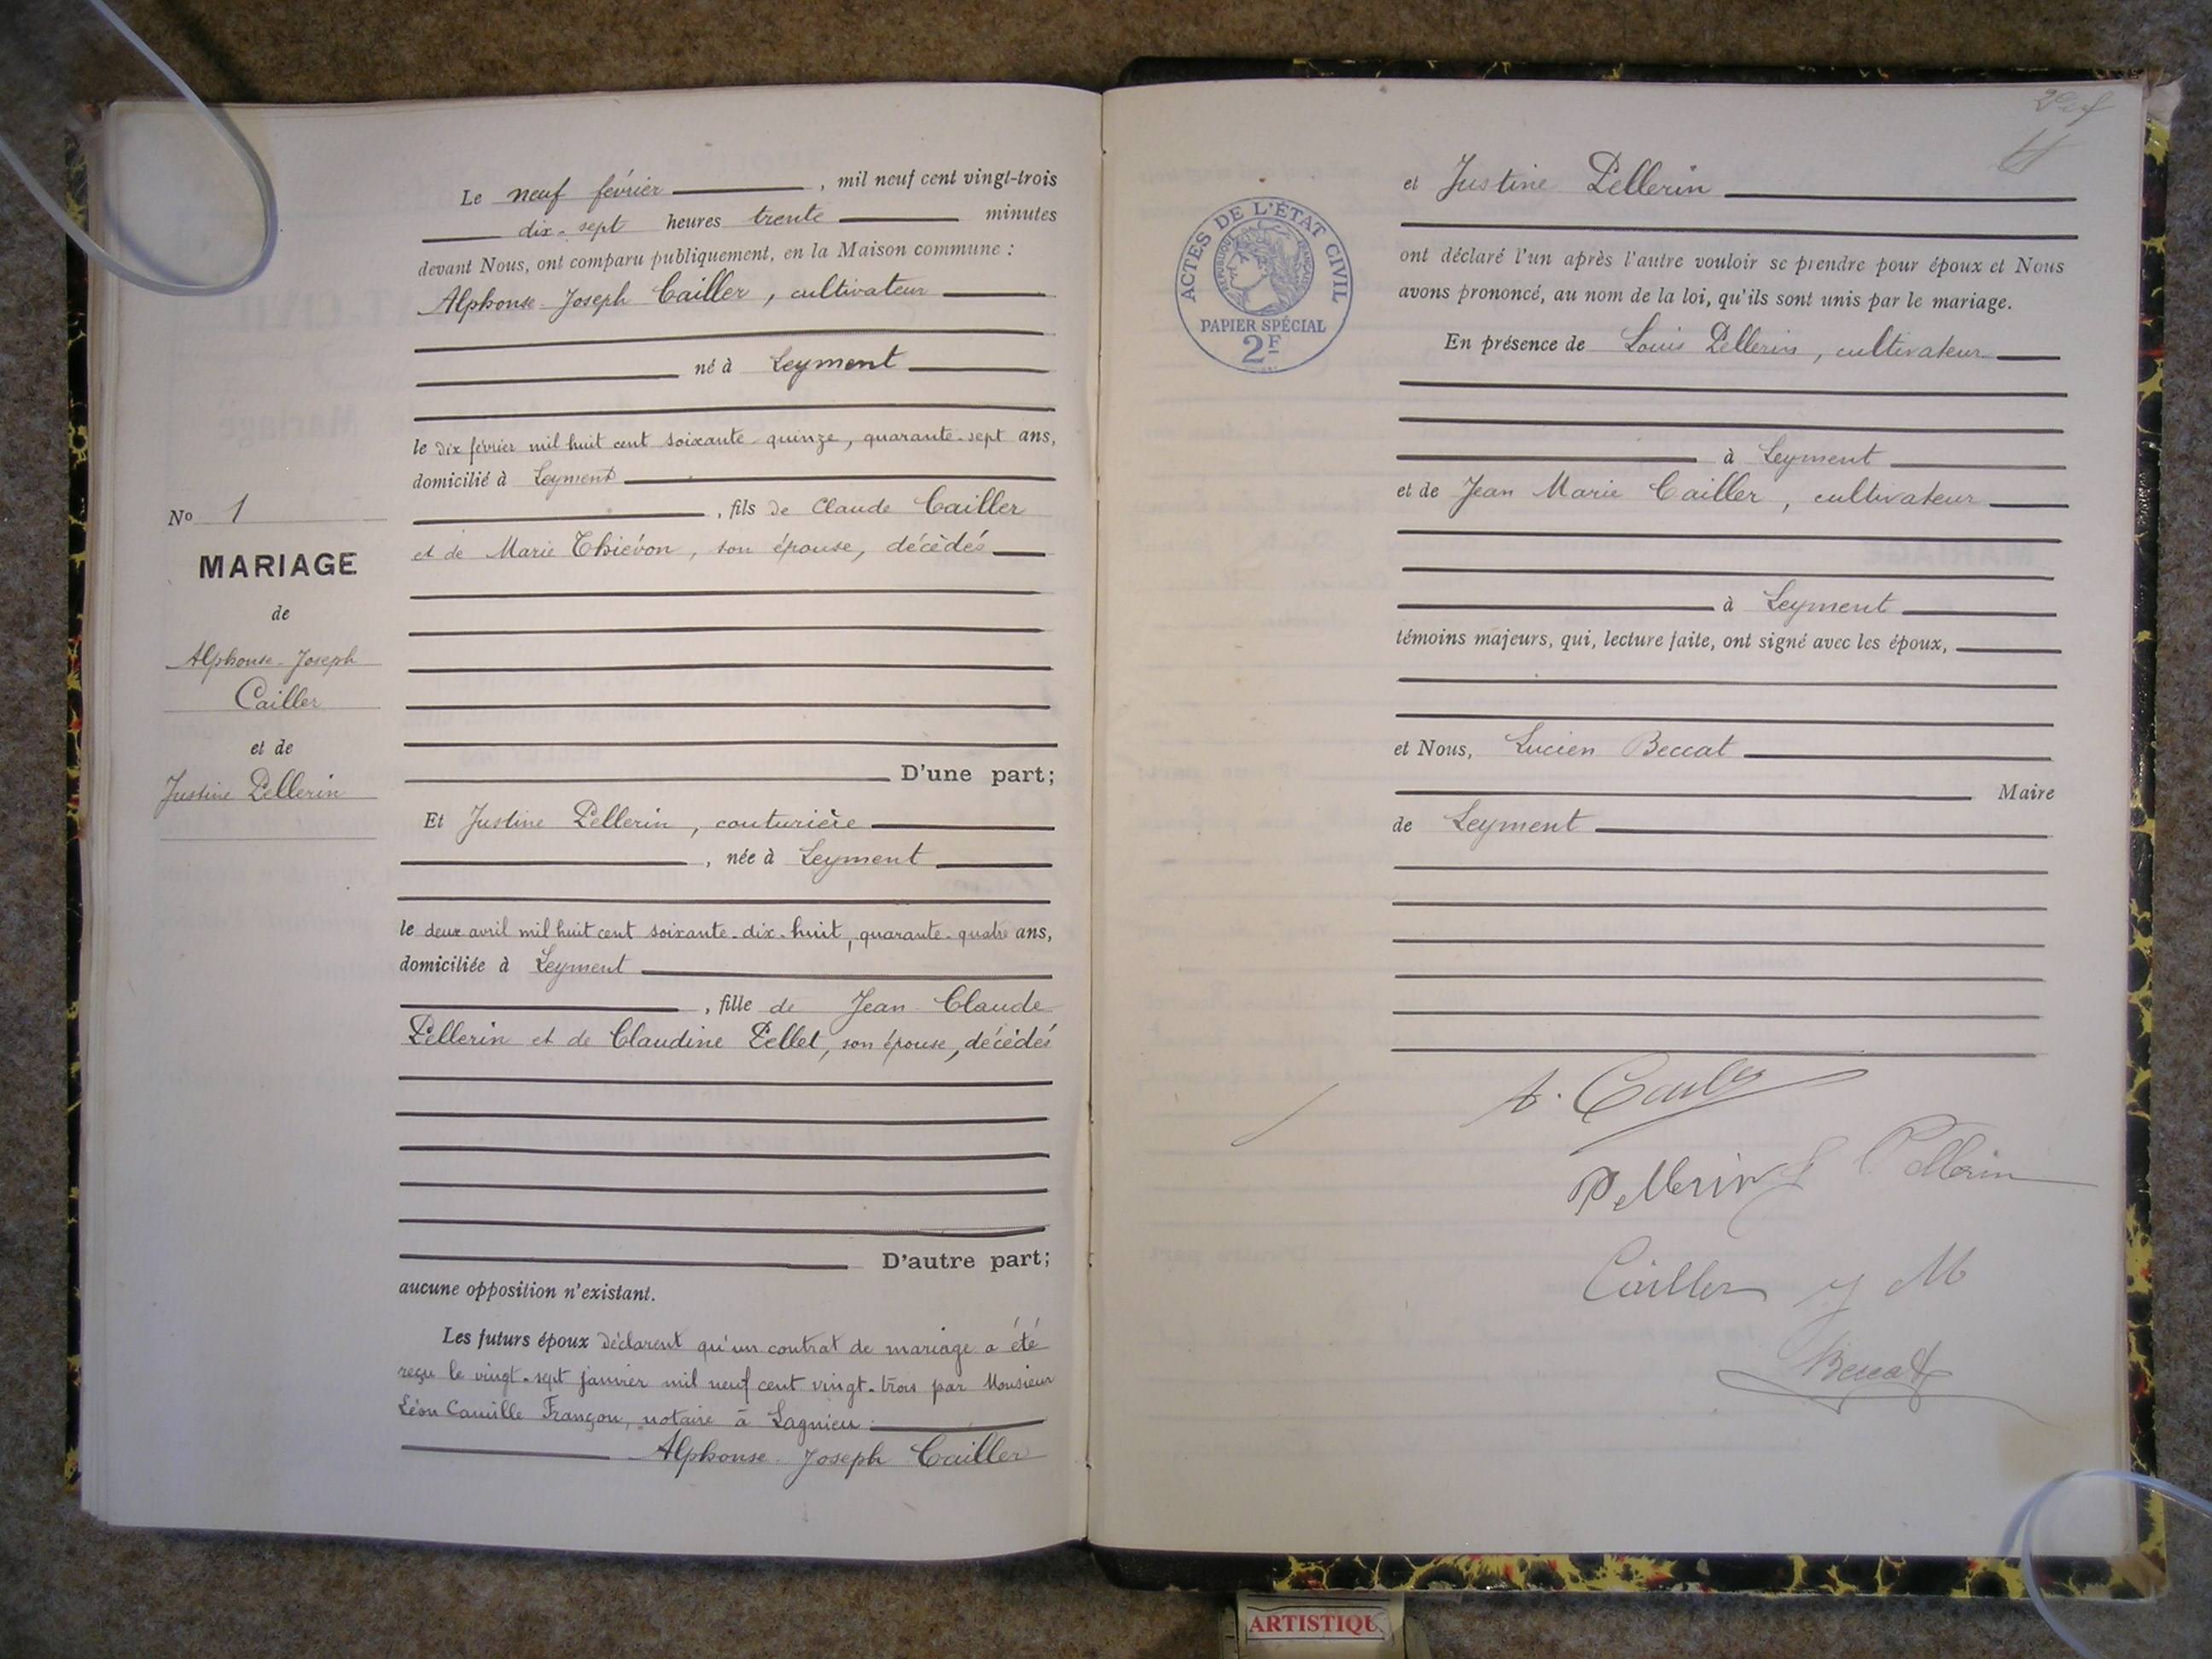 Le neuf février , mil neuf cent vingt-trois
dix-sept heures trente minutes
devant Nous, ont comparu publiquement, en la Maison commune :
Alphonse-Joseph Cailler, cultivateur
né à Leyment
le dix février mil huit cent soixante-quinze, quarante-sept ans,
domicilié à Leyment
, fils de Claude Cailler
et de Marie Thiévon, son épouse, décédés
No 1
MARIAGE
de
Alphonse-Joseph
Cailler
et de
Justine Pellerin
D'une part;
Et Justine Pellerin, couturière
, née à Leyment
le deux avril mil huit cent soixante-dix-huit, quarante-quatre ans,
domiciliée à Leyment
, fille de Jean-Claude
Pellerin et de Claudine Pellet, son épouse, décédés
D'autre part;
aucune opposition n'existant.
Les futurs époux déclarent qu'un contrat de mariage a été
reçu le vingt-sept janvier mil neuf cent vingt-trois par Monsieur
Léon Camille Françon, notaire à Lagnieu.
Alphonse-Joseph Cailler
ACTES DE L'ÉTAT CIVIL
RÉPUBLIQUE FRANÇAISE
PAPIER SPÉCIAL
2F
et Justine Pellerin
ont déclaré l'un après l'autre vouloir se prendre pour époux et Nous
avons prononcé, au nom de la loi, qu'ils sont unis par le mariage.
En présence de Louis Pellerin, cultivateur
à Leyment
et de Jean Marie Cailler, cultivateur
à Leyment
témoins majeurs, qui, lecture faite, ont signé avec les époux,
et Nous, Lucien Beccat
Maire
de Leyment
Pellerin Pellerin
Cailler J M
Beccat
ARTISTIQU